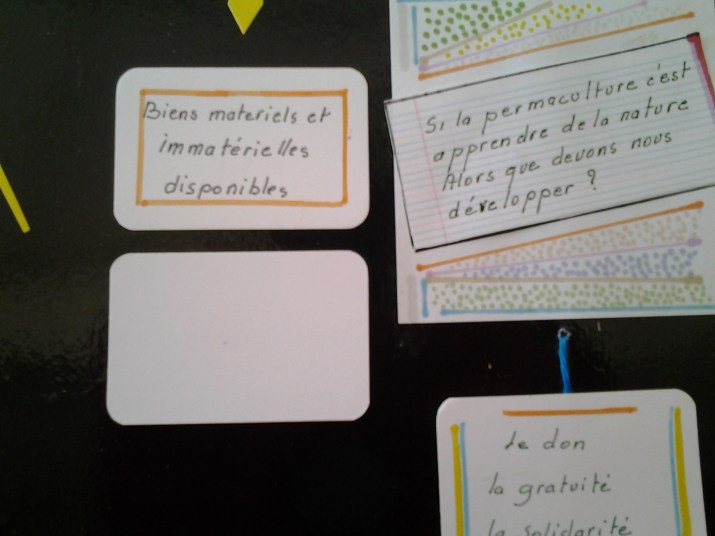 Biens materiels et
immatérielles
disponibles
Si la permaculture c'est
apprendre de la nature
Alors que devons nous
développer ?
Le don
la gratuité
la solidarité